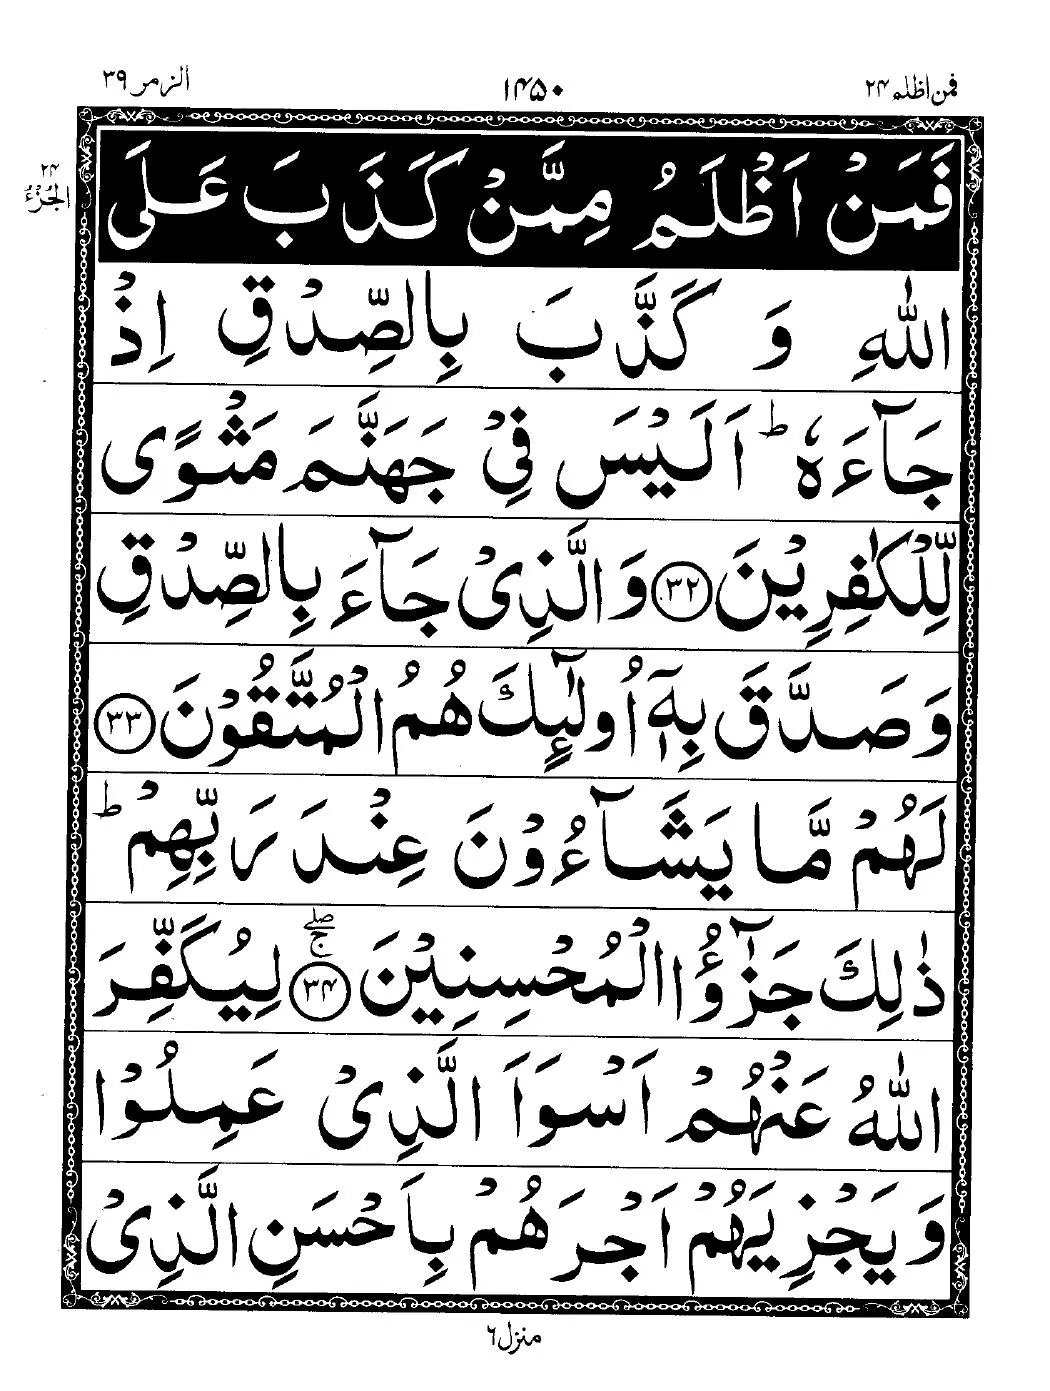 فمن اظلم ۲۴
۱۴۵۰
الزمر ۳۹
۲۴
الجُزْءُ
فَمَنْ اَظْلَمُ مِمَّنْ كَذَبَ عَلَى
اللّٰهِ وَ كَذَّبَ بِالصِّدْقِ اِذْ
جَآءَهٗ ؕ اَلَیْسَ فِیْ جَهَنَّمَ مَثْوًی
لِّلْكٰفِرِیْنَ ۳۲ وَالَّذِیْ جَآءَ بِالصِّدْقِ
وَصَدَّقَ بِهٖۤ اُولٰٓئِكَ هُمُ الْمُتَّقُوْنَ ۳۳
لَهُمْ مَّا یَشَآءُوْنَ عِنْدَ رَبِّهِمْ ؕ
ذٰلِكَ جَزٰٓؤُا الْمُحْسِنِیْنَ ۳۴ ۖۚ لِیُكَفِّرَ
اللّٰهُ عَنْهُمْ اَسْوَاَ الَّذِیْ عَمِلُوْا
وَیَجْزِیَهُمْ اَجْرَهُمْ بِاَحْسَنِ الَّذِیْ
منزل ۶